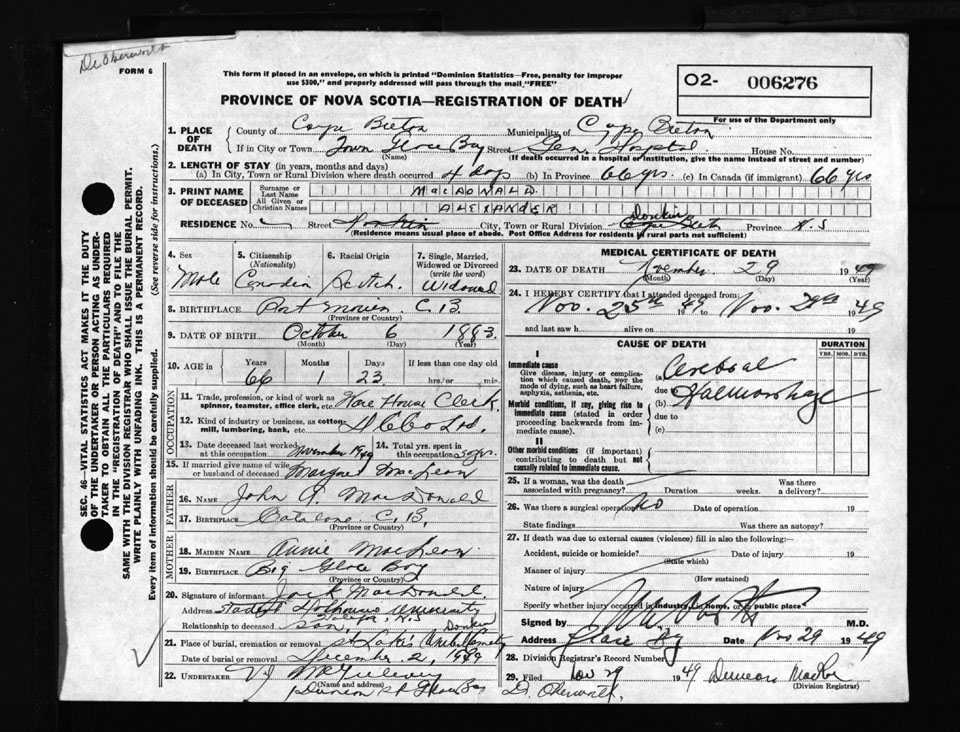 FORM 6
This form if placed in an envelope, on which is printed "Dominion Statistics—Free, penalty for improper
use $300," and properly addressed will pass through the mail "FREE"
PROVINCE OF NOVA SCOTIA—REGISTRATION OF DEATH
O2- 006276
For use of the Department only
SEC. 46—VITAL STATISTICS ACT MAKES IT THE DUTY
OF THE UNDERTAKER OR PERSON ACTING AS UNDER-
TAKER TO OBTAIN ALL THE PARTICULARS REQUIRED
IN THE "REGISTRATION OF DEATH" AND TO FILE THE
SAME WITH THE DIVISION REGISTRAR WHO SHALL ISSUE THE BURIAL PERMIT.
WRITE PLAINLY WITH UNFADING INK. THIS IS A PERMANENT RECORD.
Every item of information should be carefully supplied. (See reverse side for instructions.)
1. PLACE OF DEATH
County of Cape Breton Municipality of Cape Breton
If in City or Town Town Glace Bay Street Gen. Hospital House No.
(Name) (If death occurred in a hospital or institution, give the name instead of street and number)
2. LENGTH OF STAY (in years, months and days)
(a) In City, Town or Rural Division where death occurred 4 days (b) In Province 66 yrs. (c) In Canada (if immigrant) 66 yrs
3. PRINT NAME OF DECEASED
Surname or Last Name MACDONALD
All Given or Christian Names ALEXANDER
RESIDENCE No. Street Donkin City, Town or Rural Division Donkin Cape Breton Province N.S
(Residence means usual place of abode. Post Office Address for residents in rural parts not sufficient)
4. Sex Male
5. Citizenship (Nationality) Canadian
6. Racial Origin Scotch
7. Single, Married, Widowed or Divorced (write the word) Widowed
8. BIRTHPLACE Port Morien C.B.
(Province or Country)
9. DATE OF BIRTH October 6 1883
(Month) (Day) (Year)
10. AGE in Years 66 Months 1 Days 23 If less than one day old hrs. or min.
OCCUPATION
11. Trade, profession, or kind of work as spinner, teamster, office clerk, etc. Ware House Clerk
12. Kind of industry or business, as cotton-mill, lumbering, bank, etc.
13. Date deceased last worked at this occupation November 1949
14. Total yrs. spent in this occupation
15. If married give name of wife or husband of deceased Margret MacLean
FATHER
16. NAME John A. MacDonald
17. BIRTHPLACE Catalone C.B.
(Province or Country)
MOTHER
18. MAIDEN NAME Annie MacLean
19. BIRTHPLACE Big Glace Bay
(Province or Country)
20. Signature of informant Jack MacDonald
Address Dalhousie University
Halifax, N.S
Relationship to deceased son
21. Place of burial, cremation or removal St Luke's Cemetery Donkin
Date of burial or removal December 2, 1949
22. UNDERTAKER
Glace Bay
MEDICAL CERTIFICATE OF DEATH
23. DATE OF DEATH November 29 1949
(Month) (Day) (Year)
24. I HEREBY CERTIFY that I attended deceased from:
Nov. 25th 1949 to Nov. 29th 1949
and last saw h alive on 19
CAUSE OF DEATH
DURATION
YRS. MOS. DYS.
I
Immediate cause
Give disease, injury or complication which caused death, NOT the mode of dying, such as heart failure, asphyxia, asthenia, etc.
(a) Cerebral
due to
(b) Haemorrhage
Morbid conditions, if any, giving rise to immediate cause (stated in order proceeding backwards from immediate cause).
due to
(c)
II
Other morbid conditions (if important) contributing to death but not causally related to immediate cause.
25. If a woman, was the death associated with pregnancy? Duration weeks. Was there a delivery?
26. Was there a surgical operation? No Date of operation 19
State findings Was there an autopsy?
27. If death was due to external causes (violence) fill in also the following:—
Accident, suicide or homicide? Date of injury 19
(State which)
Manner of injury
(How sustained)
Nature of injury
Specify whether injury occurred in industry, in home, or in public place.
Signed by M.D.
Address Glace Bay Date Nov 29 1949
28. Division Registrar's Record Number
29. Filed Nov 29 1949 Duncan
(Division Registrar)